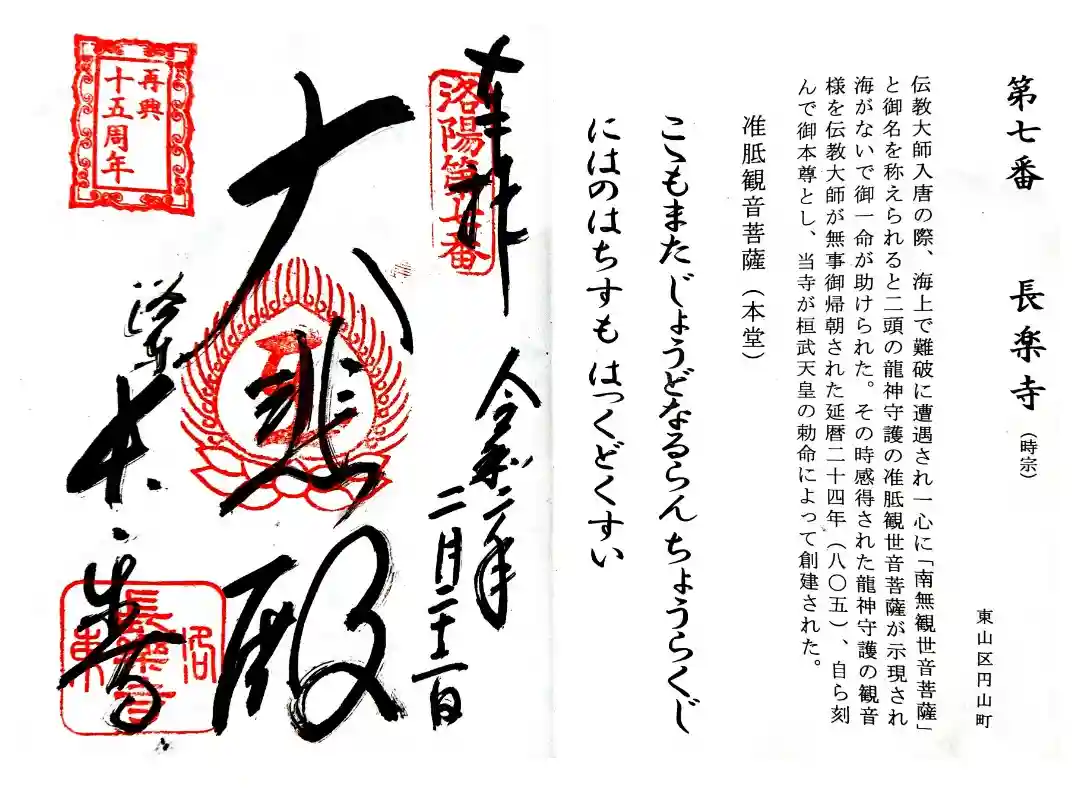 第七番　長楽寺（時宗）
東山区円山町
伝教大師入唐の際、海上で難破に遭遇され一心に「南無観世音菩薩」
と御名を称えられると二頭の龍神守護の准胝観世音菩薩が示現され
海がないで御一命が助けられた。その時感得された龍神守護の観音
様を伝教大師が無事御帰朝された延暦二十四年（八〇五）、自ら刻
んで御本尊とし、当寺が桓武天皇の勅命によって創建された。
准胝観音菩薩（本堂）
こゝもまたじょうどなるらん ちょうらくじ
にはのはちすも はっくどくすい
奉拝
洛陽第七番
令和二年
二月二十二日
大悲殿
再興
十五周年
洛東
長楽寺